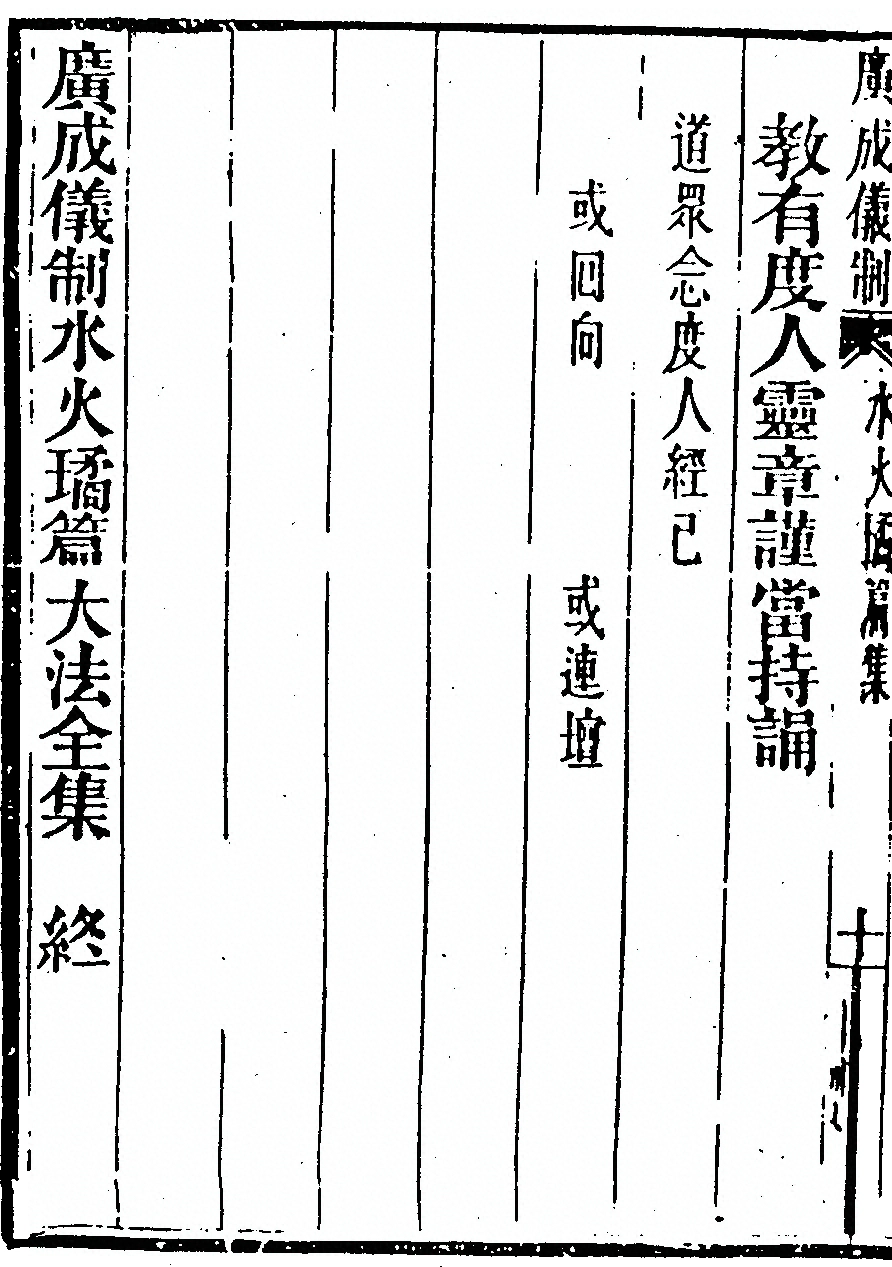 廣成儀制 水火㩫篇集 十
教有度人靈章謹當持誦
道眾念度人經已
或回向 或連壇
廣成儀制水火璚篇大法全集 終